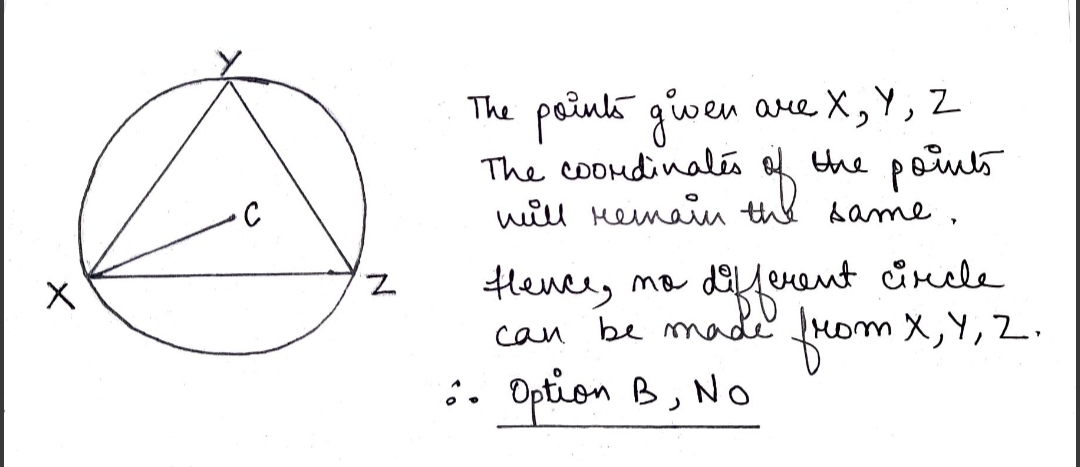 Y
C
X
Z
The points given are X, Y, Z
The coordinates of the points
will remain the same.
Hence, no different circle
can be made from X, Y, Z.
∴ Option B, No